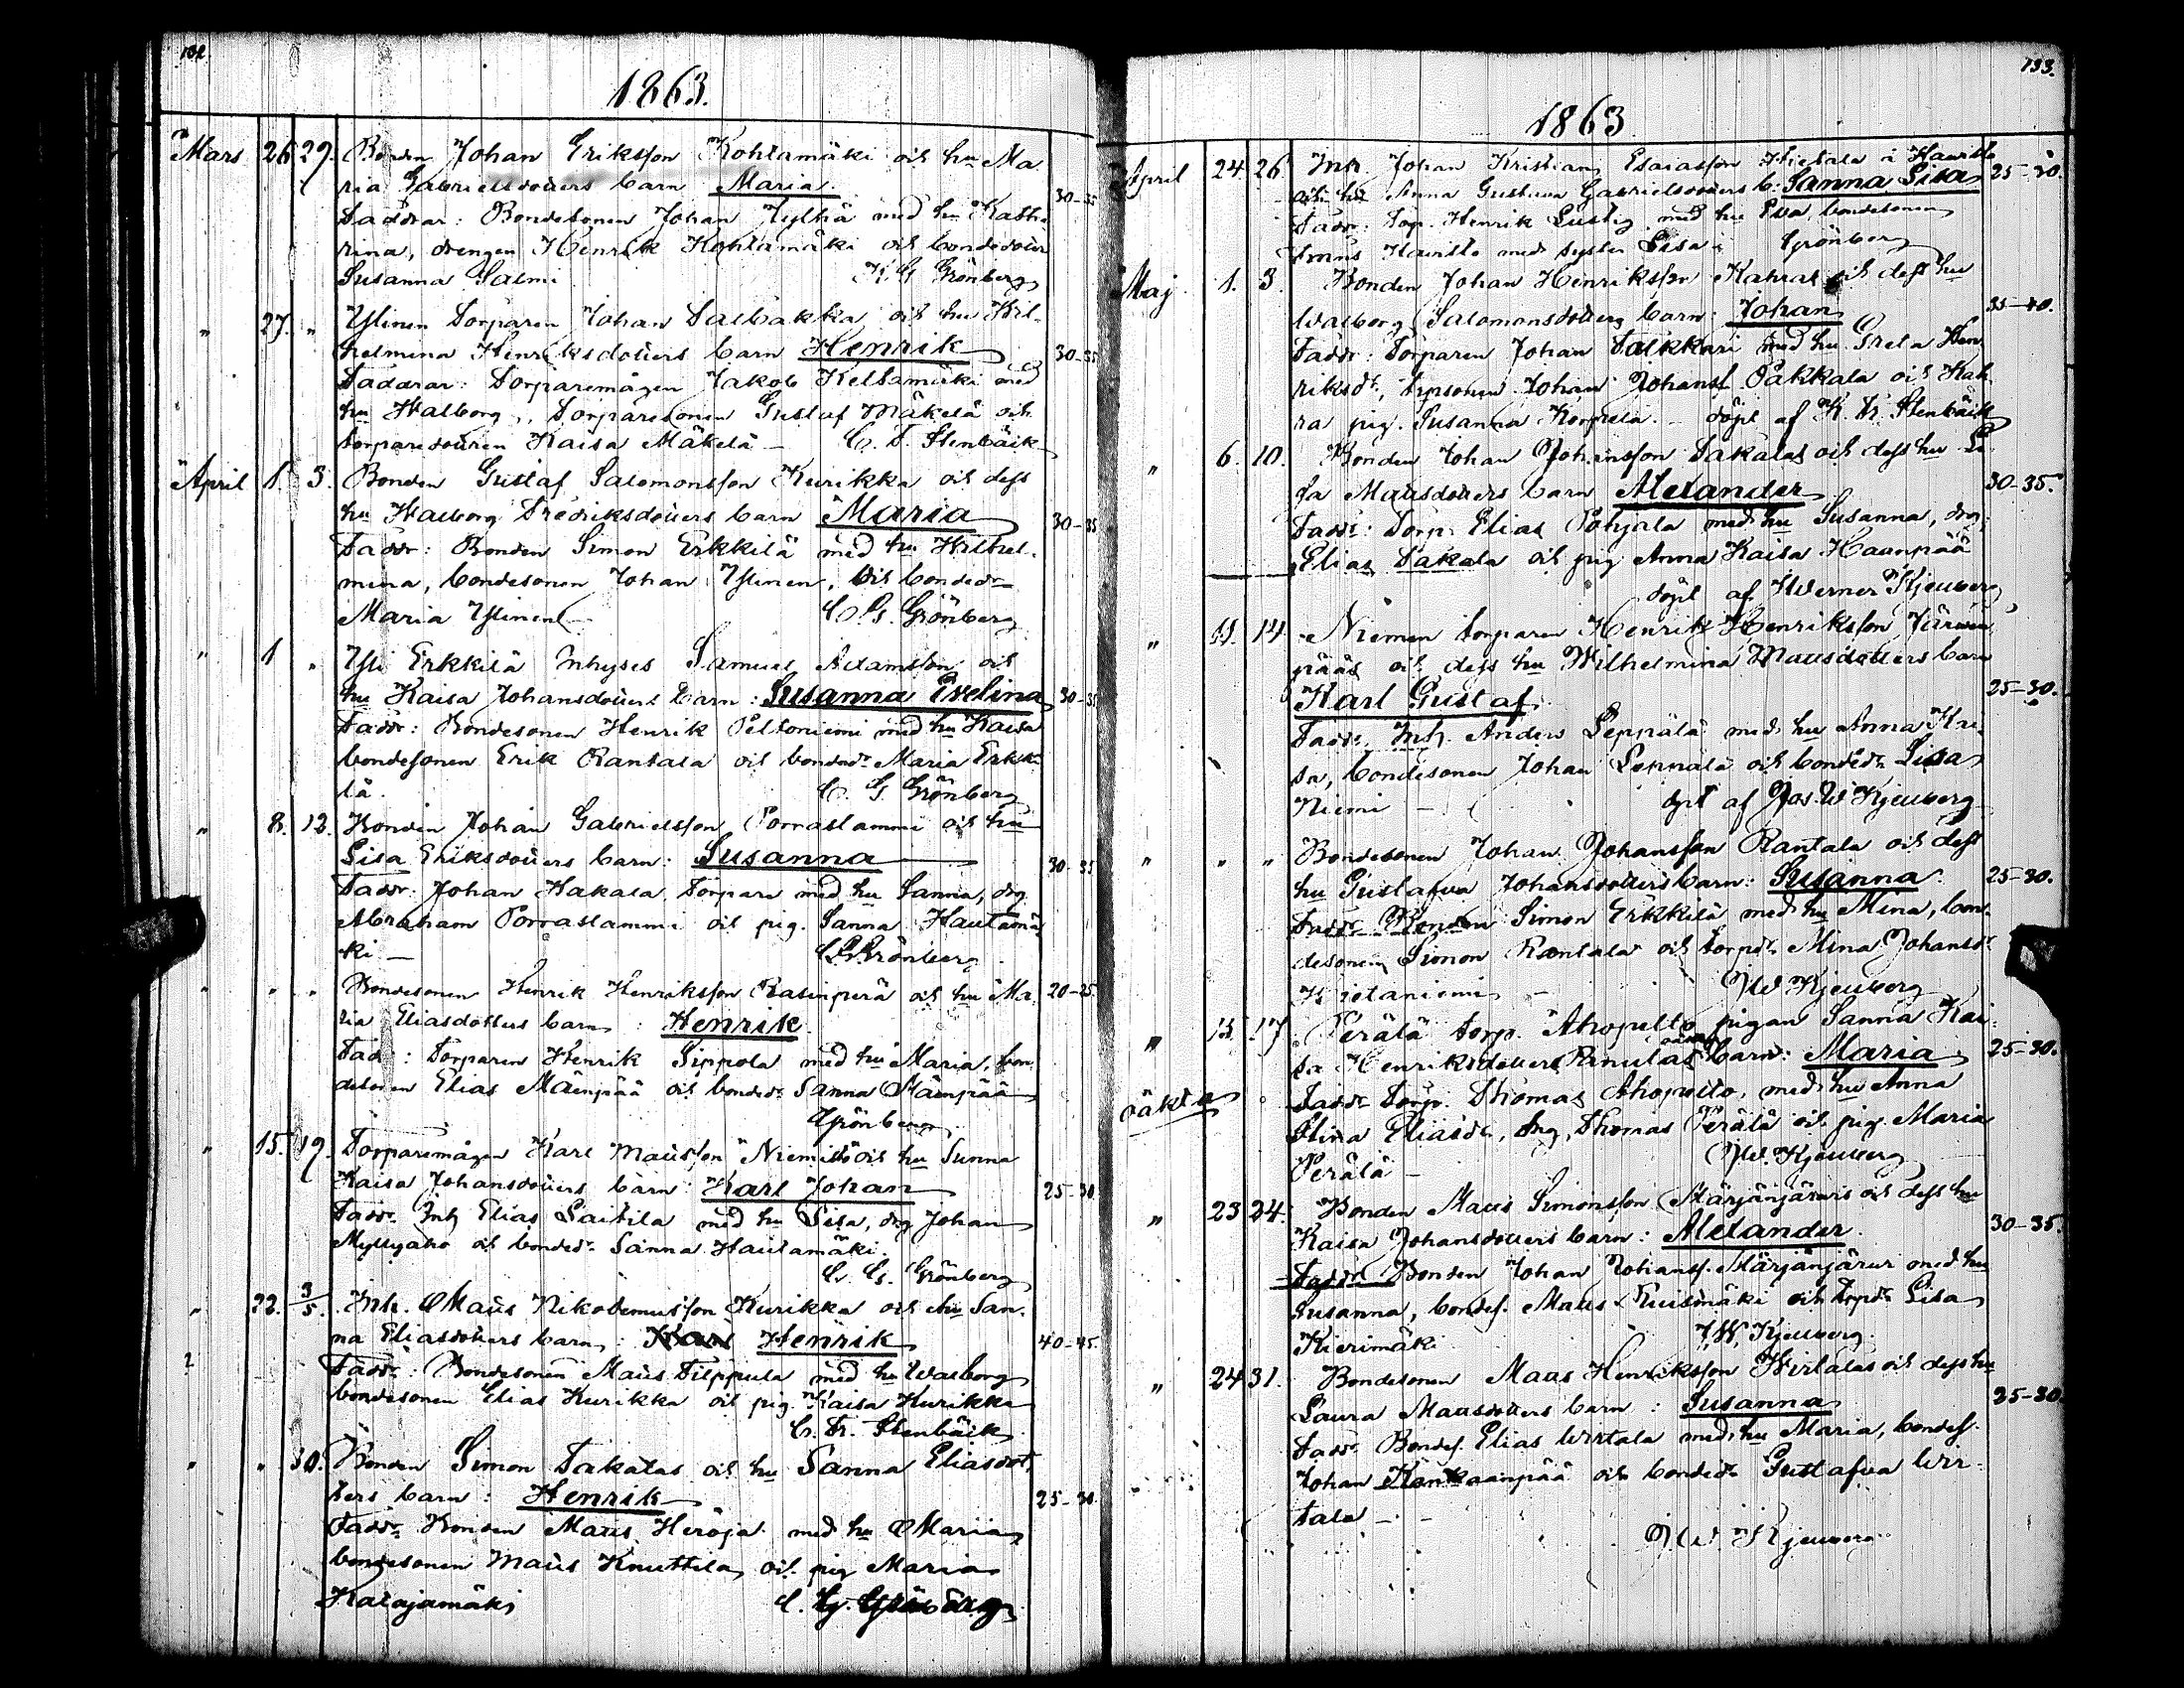 132.
1863.
Mars 26 29. Bonden Johan Eriksson Kohtamäki och hu Ma
ria Gabrielsdotters barn Maria. 30-35
Faddrar: Bondesonen Johan Jylhä med hu Katha
rina, drengen Henrik Kohtamäki och bondedotr
Susanna Salmi K G Grönberg
" 27. " Ylinen Torparen Johan Salbakka och hu Wil
helmina Henriksdotters barn Henrik 30-35
Faddrar: Torparemågen Jakob Keltamäki med
hu Walborg, Torparesonen Gustaf Mäkelä och
torparedottren Kaisa Mäkelä - C. F. Stenbäck
April 1. 3. Bonden Gustaf Salomonsson Kurikka och dess
hu Walborg Fredriksdotters barn Maria 30-35
Faddr: Bonden Simon Erkkilä med hu Wilhel-
mina, bondesonen Johan Ylinen, och bondedr
Maria Ylinen C. G. Grönberg
" 1 " Yli Erkkilä Inhyses Samuel Adamsson och
hu Kaisa Johansdotters barn: Susanna Evelina 30-35
Faddr: Bondesonen Henrik Peltoniemi med hu Kaisa
bondesonen Erik Rantala och bondedr Maria Erkki-
lä. C. G. Grönberg
" 8. 12. Bonden Johan Gabrielsson Porraslammi och hu
Lisa Eriksdotters barn: Susanna 30-35
Faddr: Johan Kakala, Torpare med hu Sanna, drg
Abraham Porraslammi och pig. Sanna Hautamä
ki - C. G. Grönberg
" " " Bondesonen Henrik Henriksson Rasinperä och hu Ma 20-25.
ria Eliasdotters barn: Henrik.
Fadr: Torparen Henrik Sippola med hu Maria, bon
desonen Elias Mäenpää och bonded. Sanna Mäenpää
Grönberg
" 15. 19. Torparemågen Karl Mattsson Niemistö och hu Sanna
Kaisa Johansdotters barn: Karl Johan 25-30
Faddr. Inh Elias Laitila med hu Lisa, drg Johan
Myllyaho och bonded. Sanna Hautamäki.
C. G. Grönberg
" 22. 3/5. Inh. Matts Nikodemusson Kurikka och hu San-
na Eliasdotters barn: Henrik 40-45.
Faddr: Bondesonen Matts Filppula med hu Walborg
bondesonen Elias Kurikka och pig. Kaisa Kurikka
C. F. Stenbäck
" " 30. Bonden Simon Takalas och hu Sanna Eliasdot-
ters barn: Henrik 25-30.
Faddr. Bonden Matts Heroja med hu Maria
bondesonen Matts Knuttila och pig Maria
Katajamäki C. G. Grönberg
133.
1863
April 24. 26. Inh. Johan Kristian Esaiasson Hietala å Havisto 25-30.
och hu Anna Gustava Gabrielsdotters b: Sanna Lisa
Faddr: Torp. Henrik Lustig med hu Eva, bondesonen
Frans Havisto med syster Lisa Grönberg
Maj 1. 3. Bonden Johan Henriksson Kahras och dess hu
Walborg Salomonsdotters barn: Johan 35-40.
Faddr: Torparen Johan Talkkari med hu Greta Hen
riksdr, trpsonen Johan Johanss. Pakkala och Kah
ra pig. Susanna Korpela. - döpt af K. F. Stenbäck
" 6. 10. Bonden Johan Johansson Takalas och dess hu Li-
sa Mattsdotters barn Alexander 30-35.
Faddr: Torp. Elias Pohjala med hu Susanna, drg
Elias Takala och pig Anna Kaisa Haanpää
döpt af Werner Kjeuberg
" 11. 14. Niemen torparen Henrik Henriksson Järven
pääs och dess hu Wilhelmina Mattsdotters barn
Karl Gustaf. 25-30.
Faddr. Inh. Anders Leppälä med hu Anna Kai-
sa, bondesonen Johan Leppälä och bondedr Lisa
Niemi - döpt af Jos. W Kjeuberg
" " " Bondesonen Johan Johansson Rantala och dess
hu Gustafva Johansdotters barn: Susanna 25-30.
Faddr. Bonden Simon Erkkilä med hu Mina, bon-
desonen Simon Rantala och torpdr Mina Johansdr
Kietaniemi - J W Kjeuberg
" 13. 17. Perälä torp. Ahopelto pigan Sanna Kai-
sa Henriksdotters Ranulas barn: Maria 25-30.
oäkta Faddr Torp. Thomas Ahopelto, med hu Anna
Stina Eliasdr, drg, Thomas Perälä och pig. Maria
Perälä - J W. Kjeuberg
" 23 24. Bonden Matts Simonsson Märjänjärvis och dess hu
Kaisa Johansdotters barn: Alexander. 30-35.
Faddr Bonden Johan Johanss. Märjänjärvi med hu
Susanna, bondes. Matts Ruismäki och trpdr Lisa
Kierimäki J. W. Kjeuberg.
" 24 31. Bondesonen Matts Henriksson Wirtalas och dess hu
Laura Mattsdotters barn: Susanna 25-30.
Faddr. Bondes. Elias Wirtala med hu Maria, bondes.
Johan Kankaanpää och bondedr Gustafva Wir-
tala - J. W. Kjeuberg